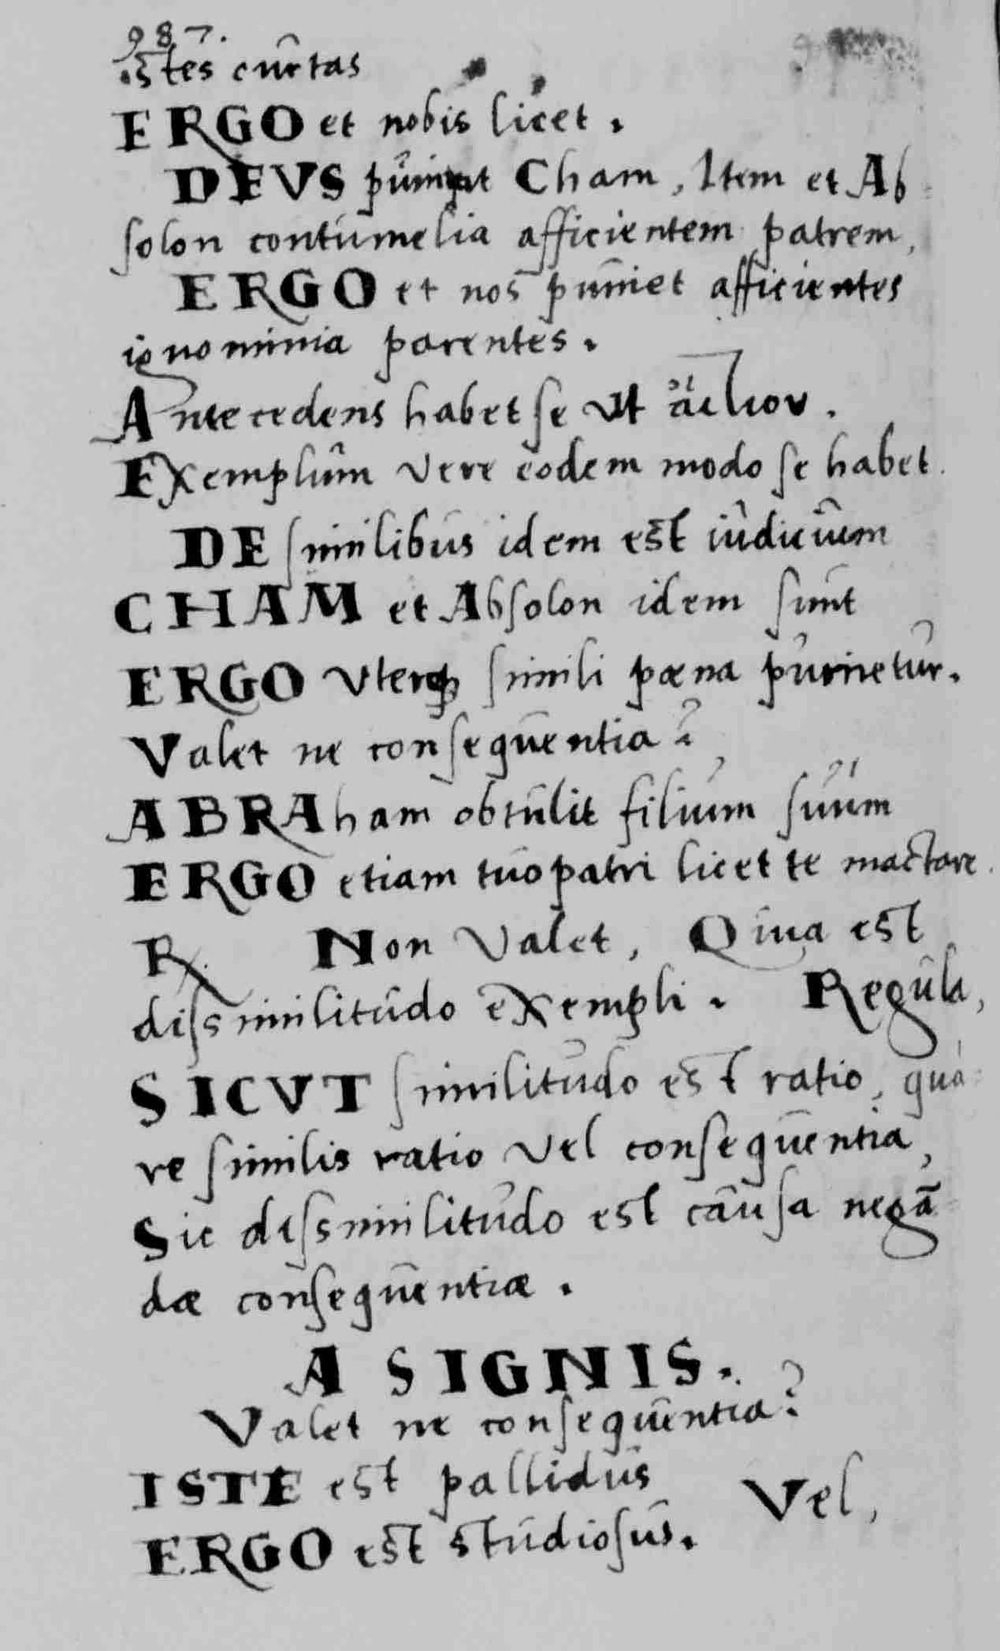 987.
stes cunctas
ERGO et nobis licet.
DEVS puniuit Cham, Item et Ab
solon contumelia afficientem patrem,
ERGO et nos puniet afficientes
ignominia parentes.
Antecedens habet se ut αἴτιον.
Exemplum vere eodem modo se habet.
DE similibus idem est iudicium
CHAM et Absolon idem sunt
ERGO vterq simili pœna punietur.
Valet ne consequentia?
ABRAham obtulit filium suum
ERGO etiam tuo patri licet te mactare.
R. Non Valet, Quia est
dissimilitudo exempli. Regula,
SICVT similitudo est ratio, qua
re similis ratio vel consequentia,
Sic dissimilitudo est causa negā
dæ consequentiæ.
A SIGNIS.
Valet ne consequentia?
ISTE est pallidus
ERGO est studiosus. Vel,